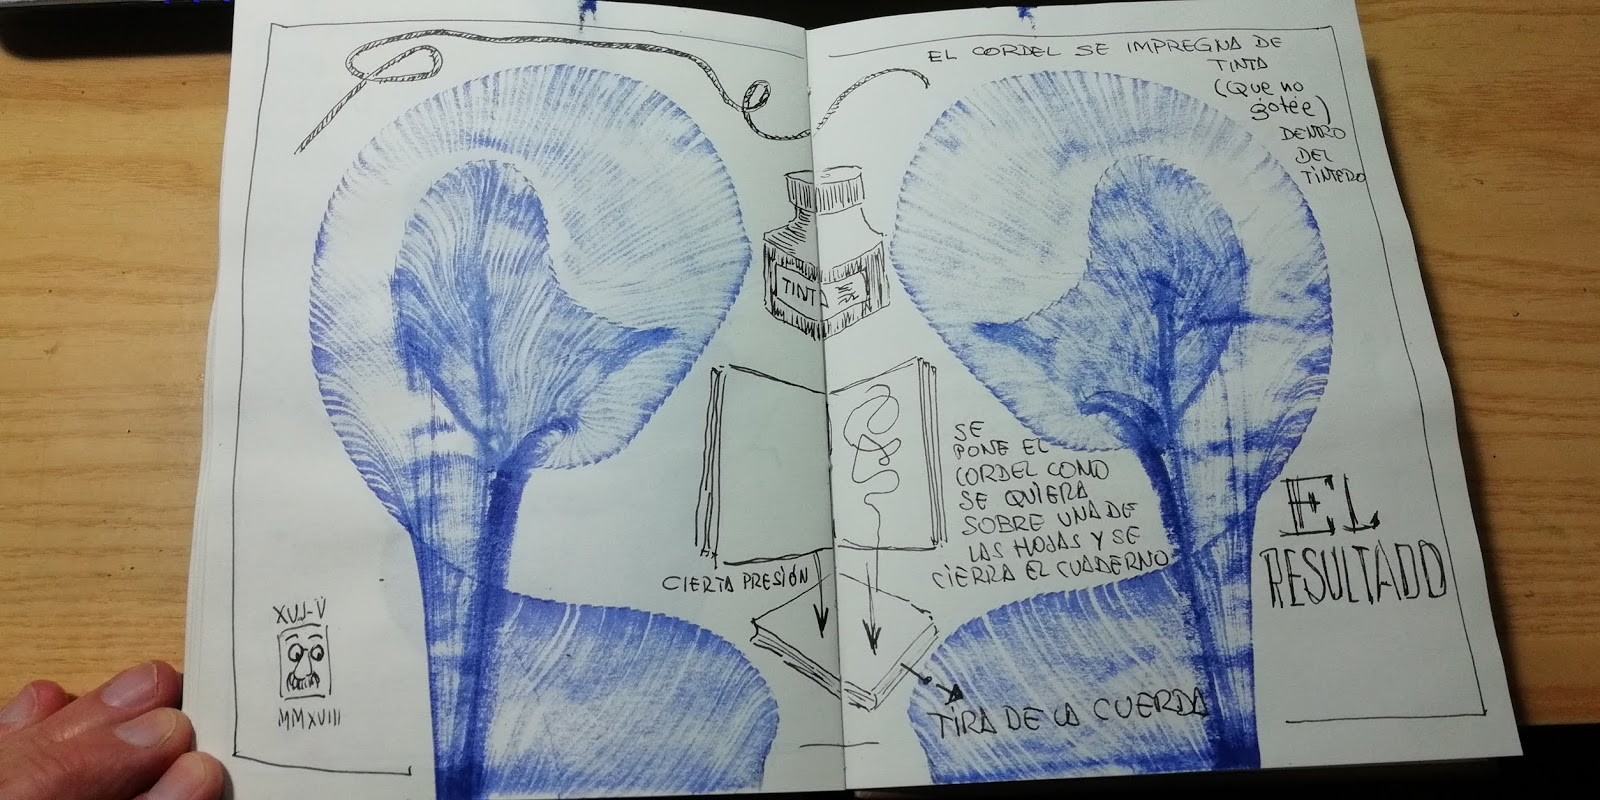 EL CORDEL SE IMPREGNA DE
TINTA
(Que no
gotée)
DENTRO
DEL
TINTERO
TINTA
SE
PONE EL
CORDEL COMO
SE QUIERA
SOBRE UNA DE
LAS HOJAS Y SE
CIERRA EL CUADERNO
CIERTA PRESIÓN
TIRA DE LA CUERDA
EL
RESULTADO
MMXVIII